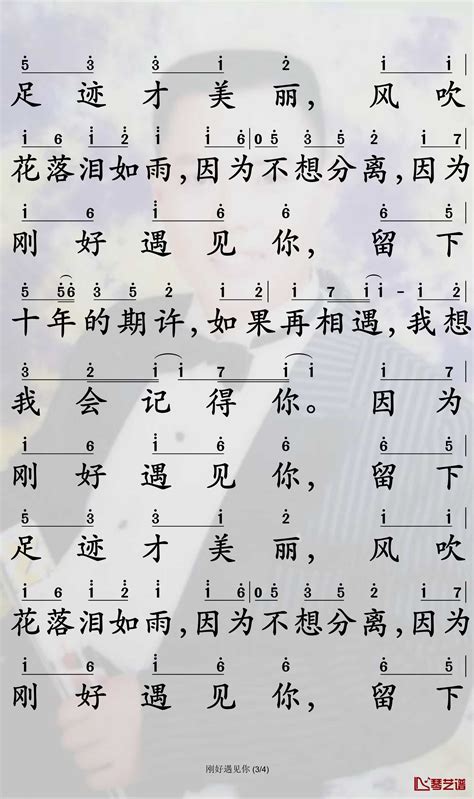 5 3 3 i 2 i i
足迹才美丽，风吹
i 6 i 2 i i 6 | 0 5 3 5 2 i 7
花落泪如雨，因为不想分离，因为
i 6 i 6 6 5
刚好遇见你，留下
5 56 3 5 2 i 2 | i 7 i i - i 2
十年的期许，如果再相遇，我想
3 2 i i 7 i i i 7
我会记得你。因为
i 6 i 6 6 5
刚好遇见你，留下
5 3 3 i 2 i i
足迹才美丽，风吹
i 6 i 2 i i 6 | 0 5 3 5 2 i 7
花落泪如雨，因为不想分离，因为
i 6 i 6 6 5
刚好遇见你，留下
刚好遇见你 (3/4)
琴艺谱